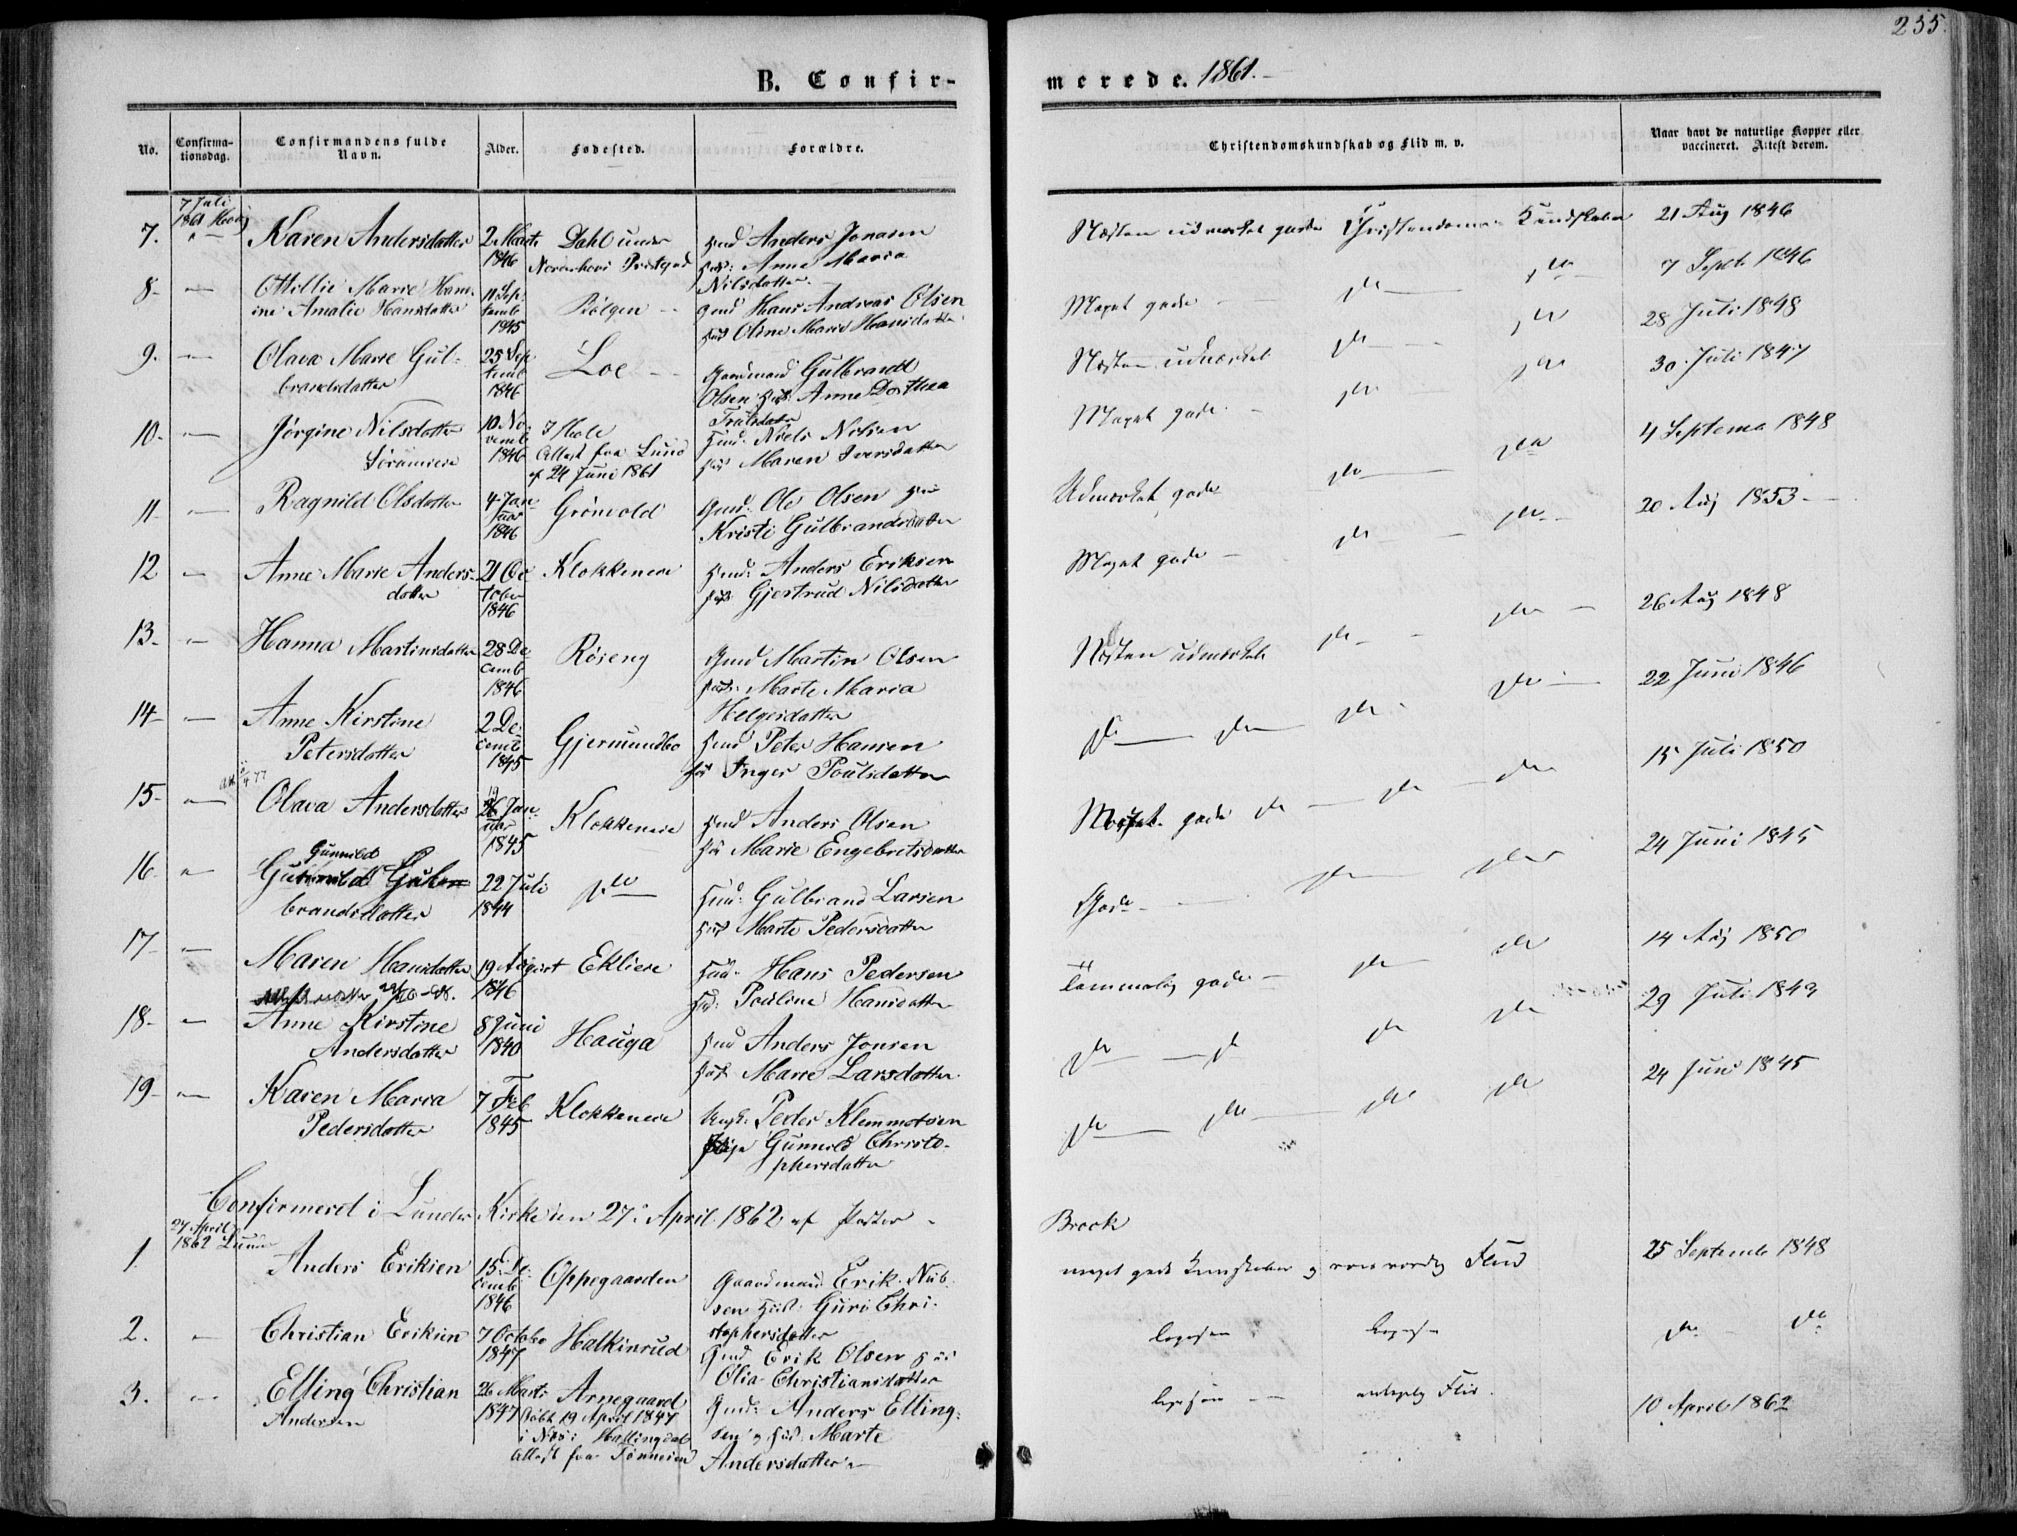 255.
B. Confirmerede. 1861.
No.
Confirmationsdag.
Confirmandens fulde Navn.
Alder.
Fødested.
Forældre.
Christendomskundskab og Flid m. v.
Naar havt de naturlige Kopper eller vaccineret. Attest derom.
7 Juli
1861
7. Karen Andersdatter 2 Marts 1846 Dahl under Norderhovs Prstgrd Anders Jonasen Anne Maria Nilsdatter
Næsten udmærket gode Christendoms Kundskaber 21 Aug 1846
8. Ottillie Marie Hansine Amalie Hansdatter 11 Septemb 1845 Gmd Hans Andreas Olsen Oline Marie Hansdatter
Meget gode do do 7 Septb 1846
9. Olava Marie Gulbrandsdatter 25 Septemb 1846 Loe Gaardmand Gulbrand Olsen Anne Dorthea
Næsten udmærket do do 28 Juli 1848
10. Jørgine Nilsdatter 10 Novemb 1846 Attest fra Lund af 24 Juni 1861 Niels Nilsen Maren Iversdatter
Meget gode do do 30 Juli 1847
11. Ragnild Olsdatter 4 Januar 1846 Grönvold Gmd. Ole Olsen Kristi Gulbrandsdatter
Udmærket gode do do 4 Septemb 1848
12 Anne Marie Andersdatter 21 October 1846 Klokkerere Anders Eriksen Gjertrud Nilsdatter
Meget gode do do 20 Aug 1853
13. Hanna Martinsdatter 28 Decemb 1846 Röseng Gmd Martin Olsen Marte Maria Helgesdatter
Næsten udmærket do do 26 Aug 1848
14 Anne Kirstine Petersdatter 2 Decemb 1845 Gjermundbo Peter Hansen Inger Poulsdatter
do do do do 22 Juni 1846
15 Olava Andersdatter 26 Januar 1845 Klokkerere Anders Olsen Marie Engebretsdatter
Meget gode do do do 15 Juli 1850
16 Gunnild Gulbrandsdatter 22 Juli 1844 do Gulbrand Larsen Marte Pedersdatter
Gode do do 24 Juni 1845
17 Maren Hansdatter 19 August 1846 Ekliere Hans Pedersen Pouline Hansdatter
Temmelig gode do do 14 Aug 1850
18 Anne Kirstine Andersdatter 8 Juni 1840 Hauga Anders Jonsen Marie Larsdatter
do do do do 29 Juli 1849
19 Karen Maria Pedersdatter 7 Feb 1845 Klokkerere Peder Klemmetsen Gunnild Christophersdatter
do do do do 24 Juni 1845
Confirmeret i Lunder Kirke den 27. April 1862 af Pastor Brock
27 April
1862 Lunder
1 Anders Eriksen 15 Decemb 1846 Oppegaarden Gaardmand Erik Nilsen Guri Christophersdatter
meget gode Kundskaber og Flid 25 Septemb 1848
2. Christian Eriksen 7 October 1847 Halkinrud Gmd Erik Olsen Olia Christiansdatter
do do
3. Elling Christian Andersen 26 Marts 1847 Arnegaard döbt 19 April 1847 i Næs i Hallingdal Attest fra Gmd: Anders Ellingsen og Marte Andersdatter
Flid 10 April 1862